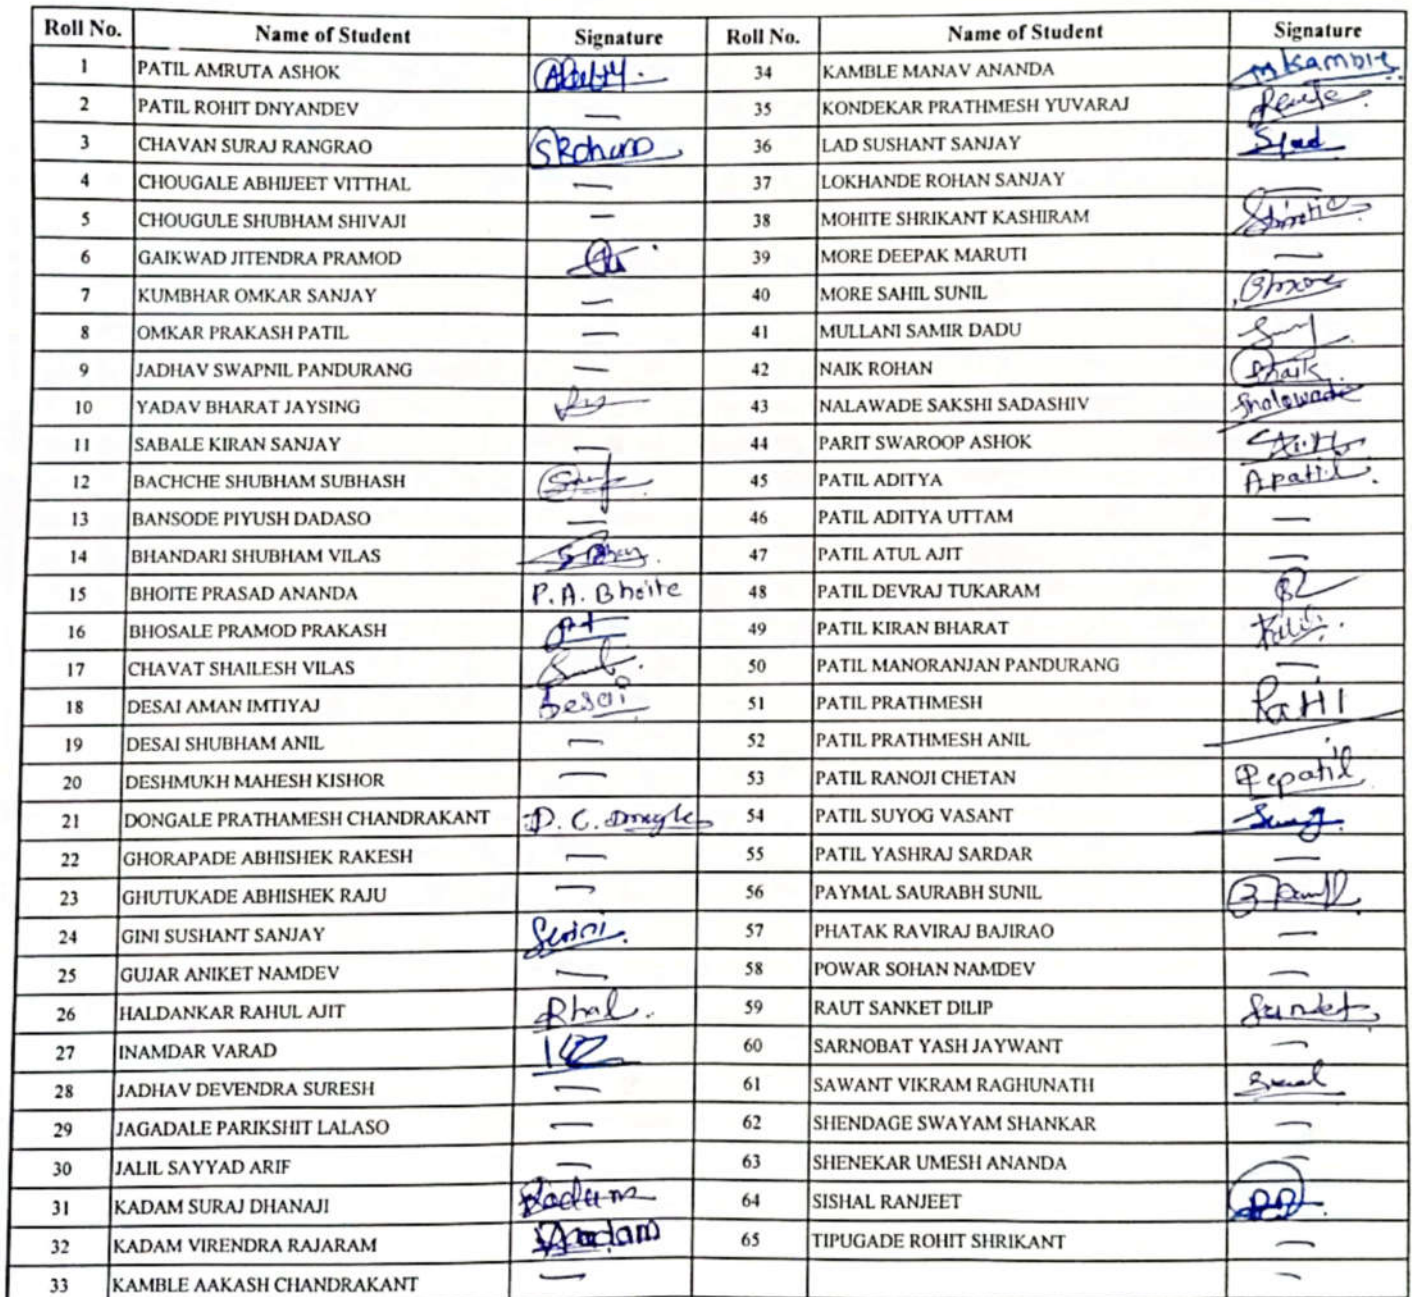 Roll No. Name of Student Signature Roll No. Name of Student Signature
1 PATIL AMRUTA ASHOK 34 KAMBLE MANAV ANANDA mkamble
2 PATIL ROHIT DNYANDEV — 35 KONDEKAR PRATHMESH YUVARAJ
3 CHAVAN SURAJ RANGRAO 36 LAD SUSHANT SANJAY
4 CHOUGALE ABHIJEET VITTHAL — 37 LOKHANDE ROHAN SANJAY —
5 CHOUGULE SHUBHAM SHIVAJI — 38 MOHITE SHRIKANT KASHIRAM
6 GAIKWAD JITENDRA PRAMOD 39 MORE DEEPAK MARUTI —
7 KUMBHAR OMKAR SANJAY — 40 MORE SAHIL SUNIL
8 OMKAR PRAKASH PATIL — 41 MULLANI SAMIR DADU
9 JADHAV SWAPNIL PANDURANG — 42 NAIK ROHAN
10 YADAV BHARAT JAYSING 43 NALAWADE SAKSHI SADASHIV
11 SABALE KIRAN SANJAY — 44 PARIT SWAROOP ASHOK
12 BACHCHE SHUBHAM SUBHASH 45 PATIL ADITYA Apatil.
13 BANSODE PIYUSH DADASO — 46 PATIL ADITYA UTTAM —
14 BHANDARI SHUBHAM VILAS 47 PATIL ATUL AJIT —
15 BHOITE PRASAD ANANDA P.A. Bhoite 48 PATIL DEVRAJ TUKARAM
16 BHOSALE PRAMOD PRAKASH 49 PATIL KIRAN BHARAT
17 CHAVAT SHAILESH VILAS 50 PATIL MANORANJAN PANDURANG —
18 DESAI AMAN IMTIYAJ Desai 51 PATIL PRATHMESH
19 DESAI SHUBHAM ANIL — 52 PATIL PRATHMESH ANIL
20 DESHMUKH MAHESH KISHOR — 53 PATIL RANOJI CHETAN
21 DONGALE PRATHAMESH CHANDRAKANT 54 PATIL SUYOG VASANT
22 GHORAPADE ABHISHEK RAKESH — 55 PATIL YASHRAJ SARDAR —
23 GHUTUKADE ABHISHEK RAJU — 56 PAYMAL SAURABH SUNIL
24 GINI SUSHANT SANJAY 57 PHATAK RAVIRAJ BAJIRAO —
25 GUJAR ANIKET NAMDEV — 58 POWAR SOHAN NAMDEV —
26 HALDANKAR RAHUL AJIT Rhal. 59 RAUT SANKET DILIP
27 INAMDAR VARAD 60 SARNOBAT YASH JAYWANT —
28 JADHAV DEVENDRA SURESH — 61 SAWANT VIKRAM RAGHUNATH
29 JAGADALE PARIKSHIT LALASO — 62 SHENDAGE SWAYAM SHANKAR —
30 JALIL SAYYAD ARIF — 63 SHENEKAR UMESH ANANDA —
31 KADAM SURAJ DHANAJI 64 SISHAL RANJEET
32 KADAM VIRENDRA RAJARAM 65 TIPUGADE ROHIT SHRIKANT —
33 KAMBLE AAKASH CHANDRAKANT — —